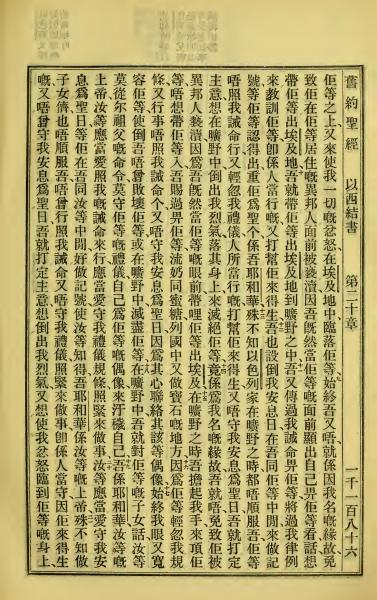 舊約聖經 以西結書 第二十章 一千一百八十六
佢等之上又來使我一切嘅忿怒在埃及地中臨落佢等始終吾又唔就係因我名嘅緣故免
致佢在佢等居生嘅異邦人面前被褻瀆因吾既然當佢等嘅面前顯出自己畀佢等看話想
帶佢等出埃及地吾就帶佢等出埃及地到曠野之中吾又傳過我誡命畀佢等將過我律例
來教訓佢等卽係人當行嘅又打幫佢來得生吾也設倒我安息日在吾同佢等中間來做記
號等佢等認得出重佢爲聖个係吾耶和華殊不知以色列家在曠野之時都唔順服吾佢等
唔照我誡命行又輕忽我禮儀人所當行嘅打幫佢來得生又唔守我安息爲聖日吾就打定
主意想在曠野中倒出我烈氣落其身上來滅絕佢等竟係爲我名嘅緣故吾就唔免致佢被
異邦人褻瀆因吾既然當佢等嘅眼前帶哩佢等出埃及在曠野之時吾擡起我手來項佢
等唔想帶佢等入吾賜過畀佢等流奶同蜜糖列國中又做寶石嘅地方因爲佢等輕忽我規
條又行事唔照我誡命个又唔守我安息爲聖日因爲其心聯絡其該等偶像始終我眼又寬
容佢等使倒吾唔曾敗壞佢等或在曠野中滅盡佢等在曠野中吾就對佢等嘅子女話汝等
莫從尔祖父嘅命令莫守佢等嘅禮儀自己爲佢等嘅偶像來汙穢自己吾係耶和華汝等嘅
上帝汝等應當愛照我嘅誡命來行應當愛守我禮儀規條照緊來做事汝等應當愛守我安
息爲聖日等佢在吾同汝等中間好做記號使汝等知得吾耶和華係汝等嘅上帝殊不知做
子女儕也唔順服吾唔曾行照我誡命又唔守我禮儀照緊來做事卽係人當守因佢來得生
嘅又唔曾守我安息爲聖日吾就打定主意想倒出我烈氣又想使我忿怒臨到佢等嘅身上